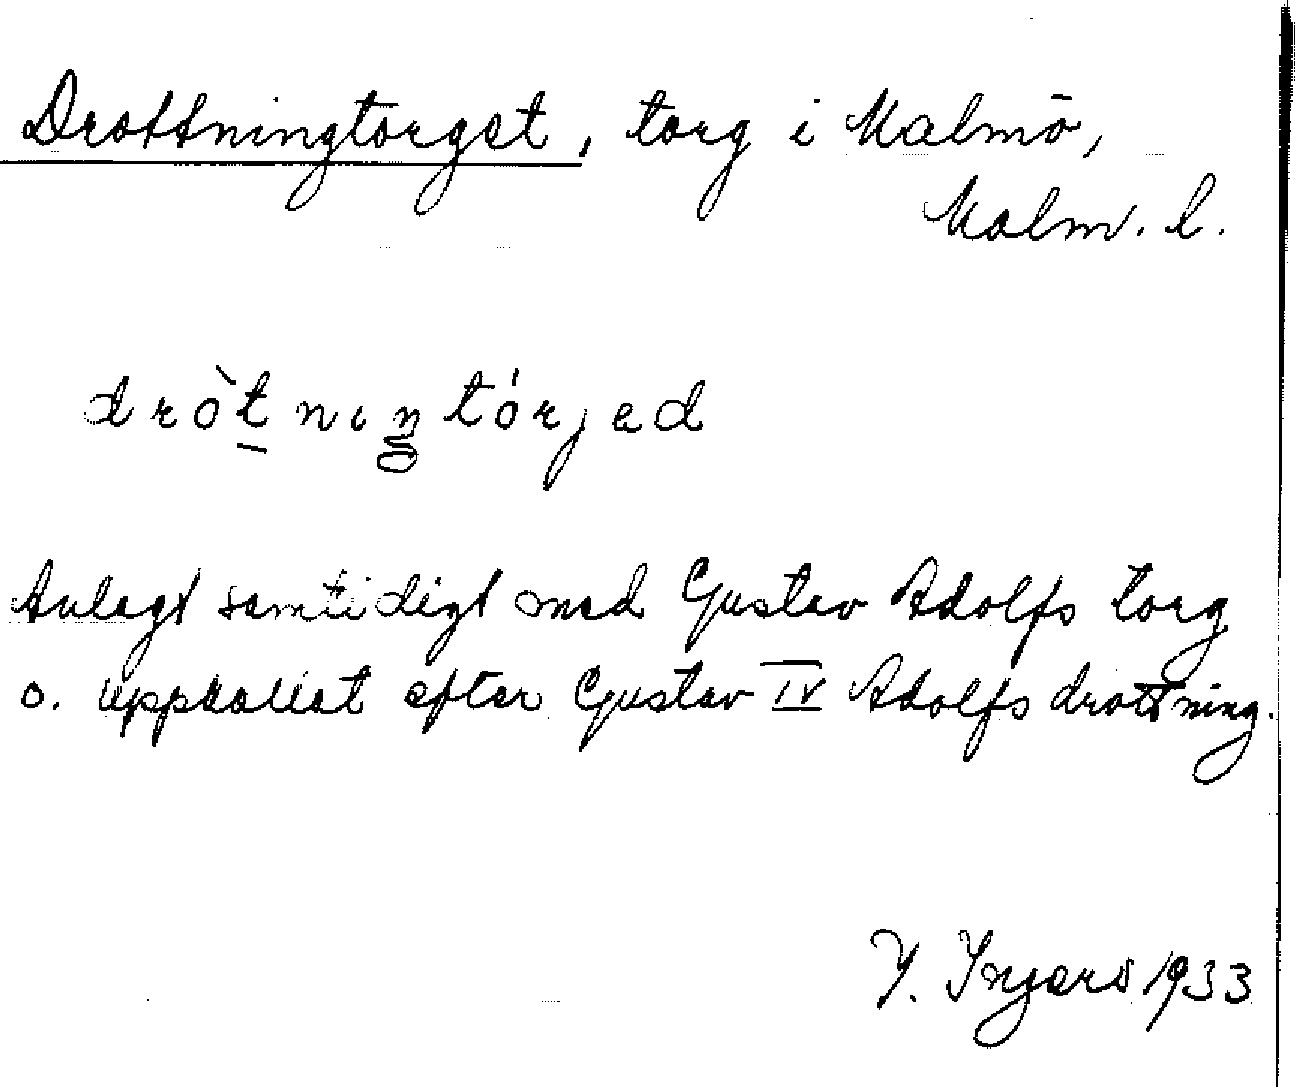 Drottningtorget, torg i Malmö,
Malm. l.
dròtnıŋtórjed
Anlagt samtidigt med Gustav Adolfs torg
o. uppkallat efter Gustav IV Adolfs drottning.
Ingers 1933